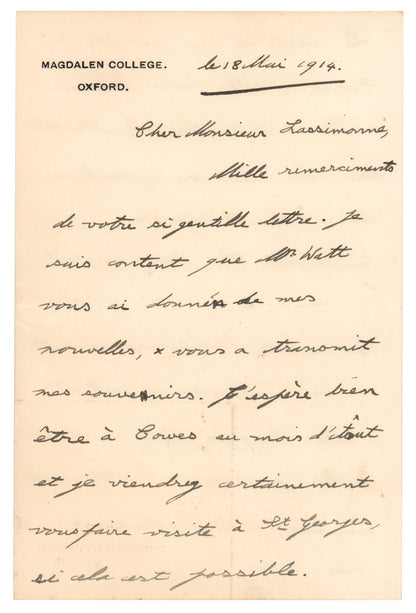 MAGDALEN COLLEGE.
OXFORD.
le 18 Mai 1914.
Cher Monsieur Lassimonne,
Mille remerciments
de votre si gentille lettre. Je
suis content que Mr Watt
vous ai donné de mes
nouvelles, & vous a transmit
mes souvenirs. J'espère bien
être à Cowes au mois d'
et je viendrey certainement
vous faire visite à St. Georges,
si cela est possible.